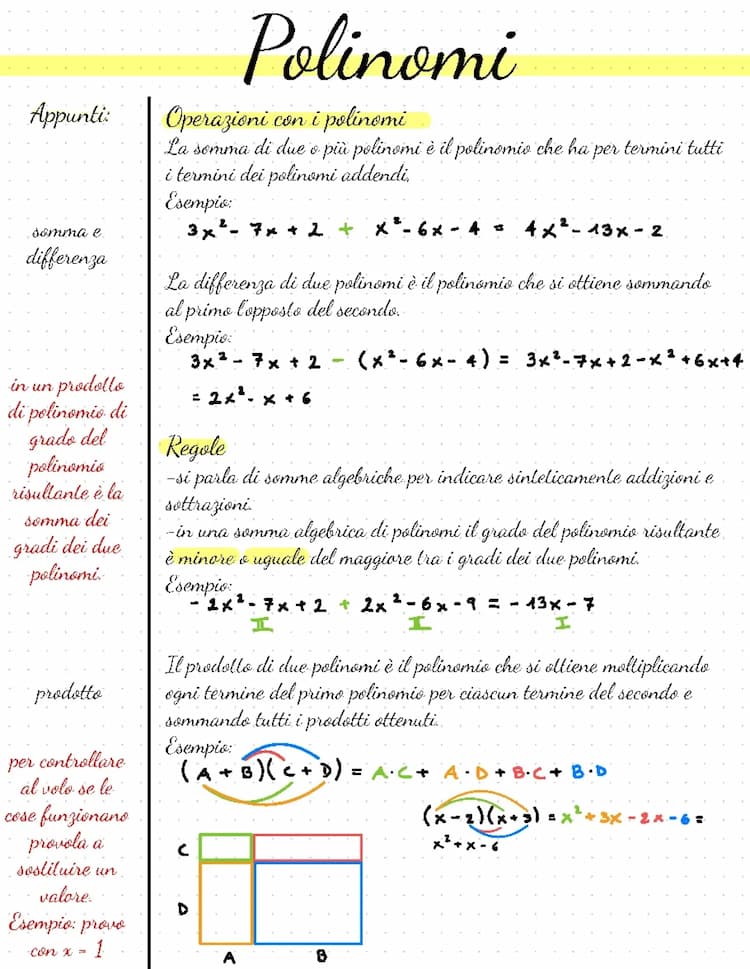 Polinomi
Appunti:
Operazioni con i polinomi
La somma di due o più polinomi è il polinomio che ha per termini tutti
i termini dei polinomi addendi.
Esempio:
somma e
differenza
3x² - 7x + 2 + x² - 6x - 4 = 4x² - 13x - 2
La differenza di due polinomi è il polinomio che si ottiene sommando
al primo l'opposto del secondo.
Esempio:
3x² - 7x + 2 - (x² - 6x - 4) = 3x² - 7x + 2 - x² + 6x + 4
= 2x² - x + 6
in un prodotto
di polinomio di
grado del
polinomio
risultante è la
somma dei
gradi dei due
polinomi.
Regole
-si parla di somme algebriche per indicare sinteticamente addizioni e
sottrazioni.
-in una somma algebrica di polinomi il grado del polinomio risultante
è minore o uguale del maggiore tra i gradi dei due polinomi.
Esempio:
- 2x² - 7x + 2 + 2x² - 6x - 9 = - 13x - 7
II II I
prodotto
Il prodotto di due polinomi è il polinomio che si ottiene moltiplicando
ogni termine del primo polinomio per ciascun termine del secondo e
sommando tutti i prodotti ottenuti.
Esempio:
(A + B)(C + D) = A·C + A·D + B·C + B·D
per controllare
al volo se le
cose funzionano
provala a
sostituire un
valore.
Esempio: provo
con x = 1
(x - 2)(x + 3) = x² + 3x - 2x - 6 =
x² + x - 6
C
D
A B